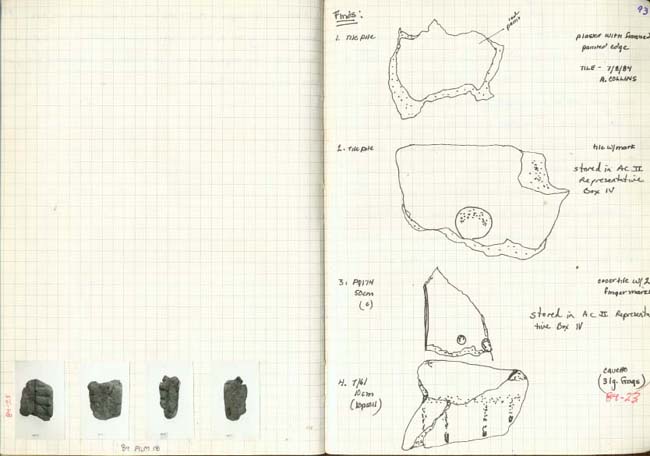 84-23
84 FILM 18
93
Finds:
1. Tile pile
red
paint
plaster with finished
painted edge
TILE - 7/8/84
A. COLLINS
2. Tile pile
tile w/mark
stored in AC II
Representative
Box IV
3.
50cm
(6)
cover tile w/2
finger marks
stored in AC II Representa
tive Box IV
4.
10cm
(topsoil)
(3 lg. frags)
84-23